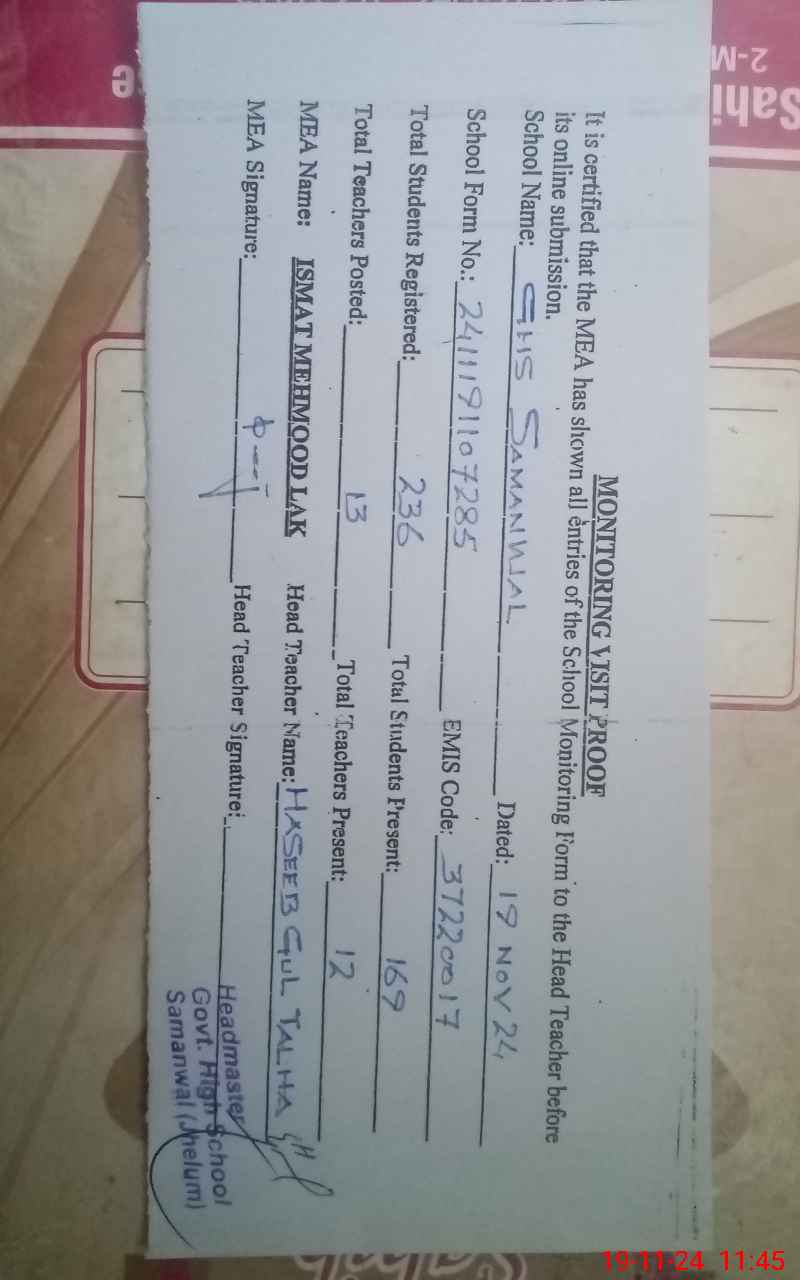 MONITORING VISIT PROOF
It is certified that the MEA has shown all entries of the School Monitoring Form to the Head Teacher before
its online submission.
School Name: GHS SAMANWAL Dated: 19 NOV 24
School Form No.: 2411191107285 EMIS Code: 37220017
Total Students Registered: 236 Total Students Present: 169
Total Teachers Posted: 13 Total Teachers Present: 12
MEA Name: ISMAT MEHMOOD LAK Head Teacher Name: HASEEB GUL TALHA
MEA Signature: Head Teacher Signature:
Headmaster
Govt. High School
Samanwal (Jhelum)
Sahi
2-M
19-11-24 11:45